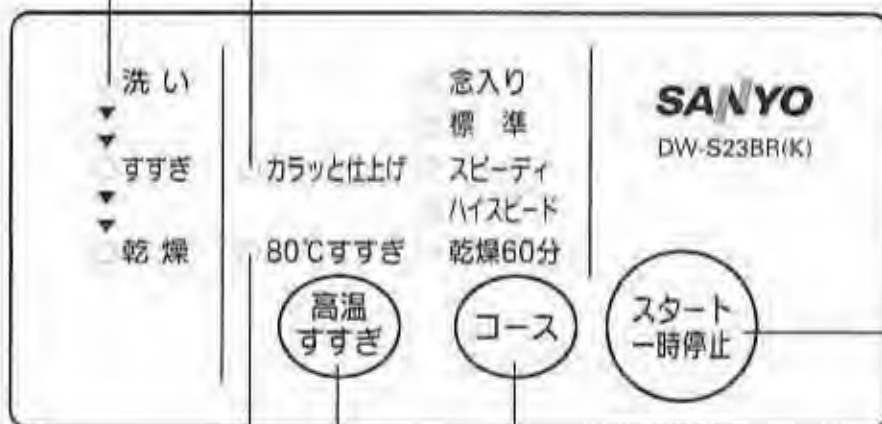 洗い
すすぎ
乾燥
カラッと仕上げ
80℃すすぎ
高温
すすぎ
念入り
標準
スピーディ
ハイスピード
乾燥60分
コース
SANYO
DW-S23BR(K)
スタート
一時停止